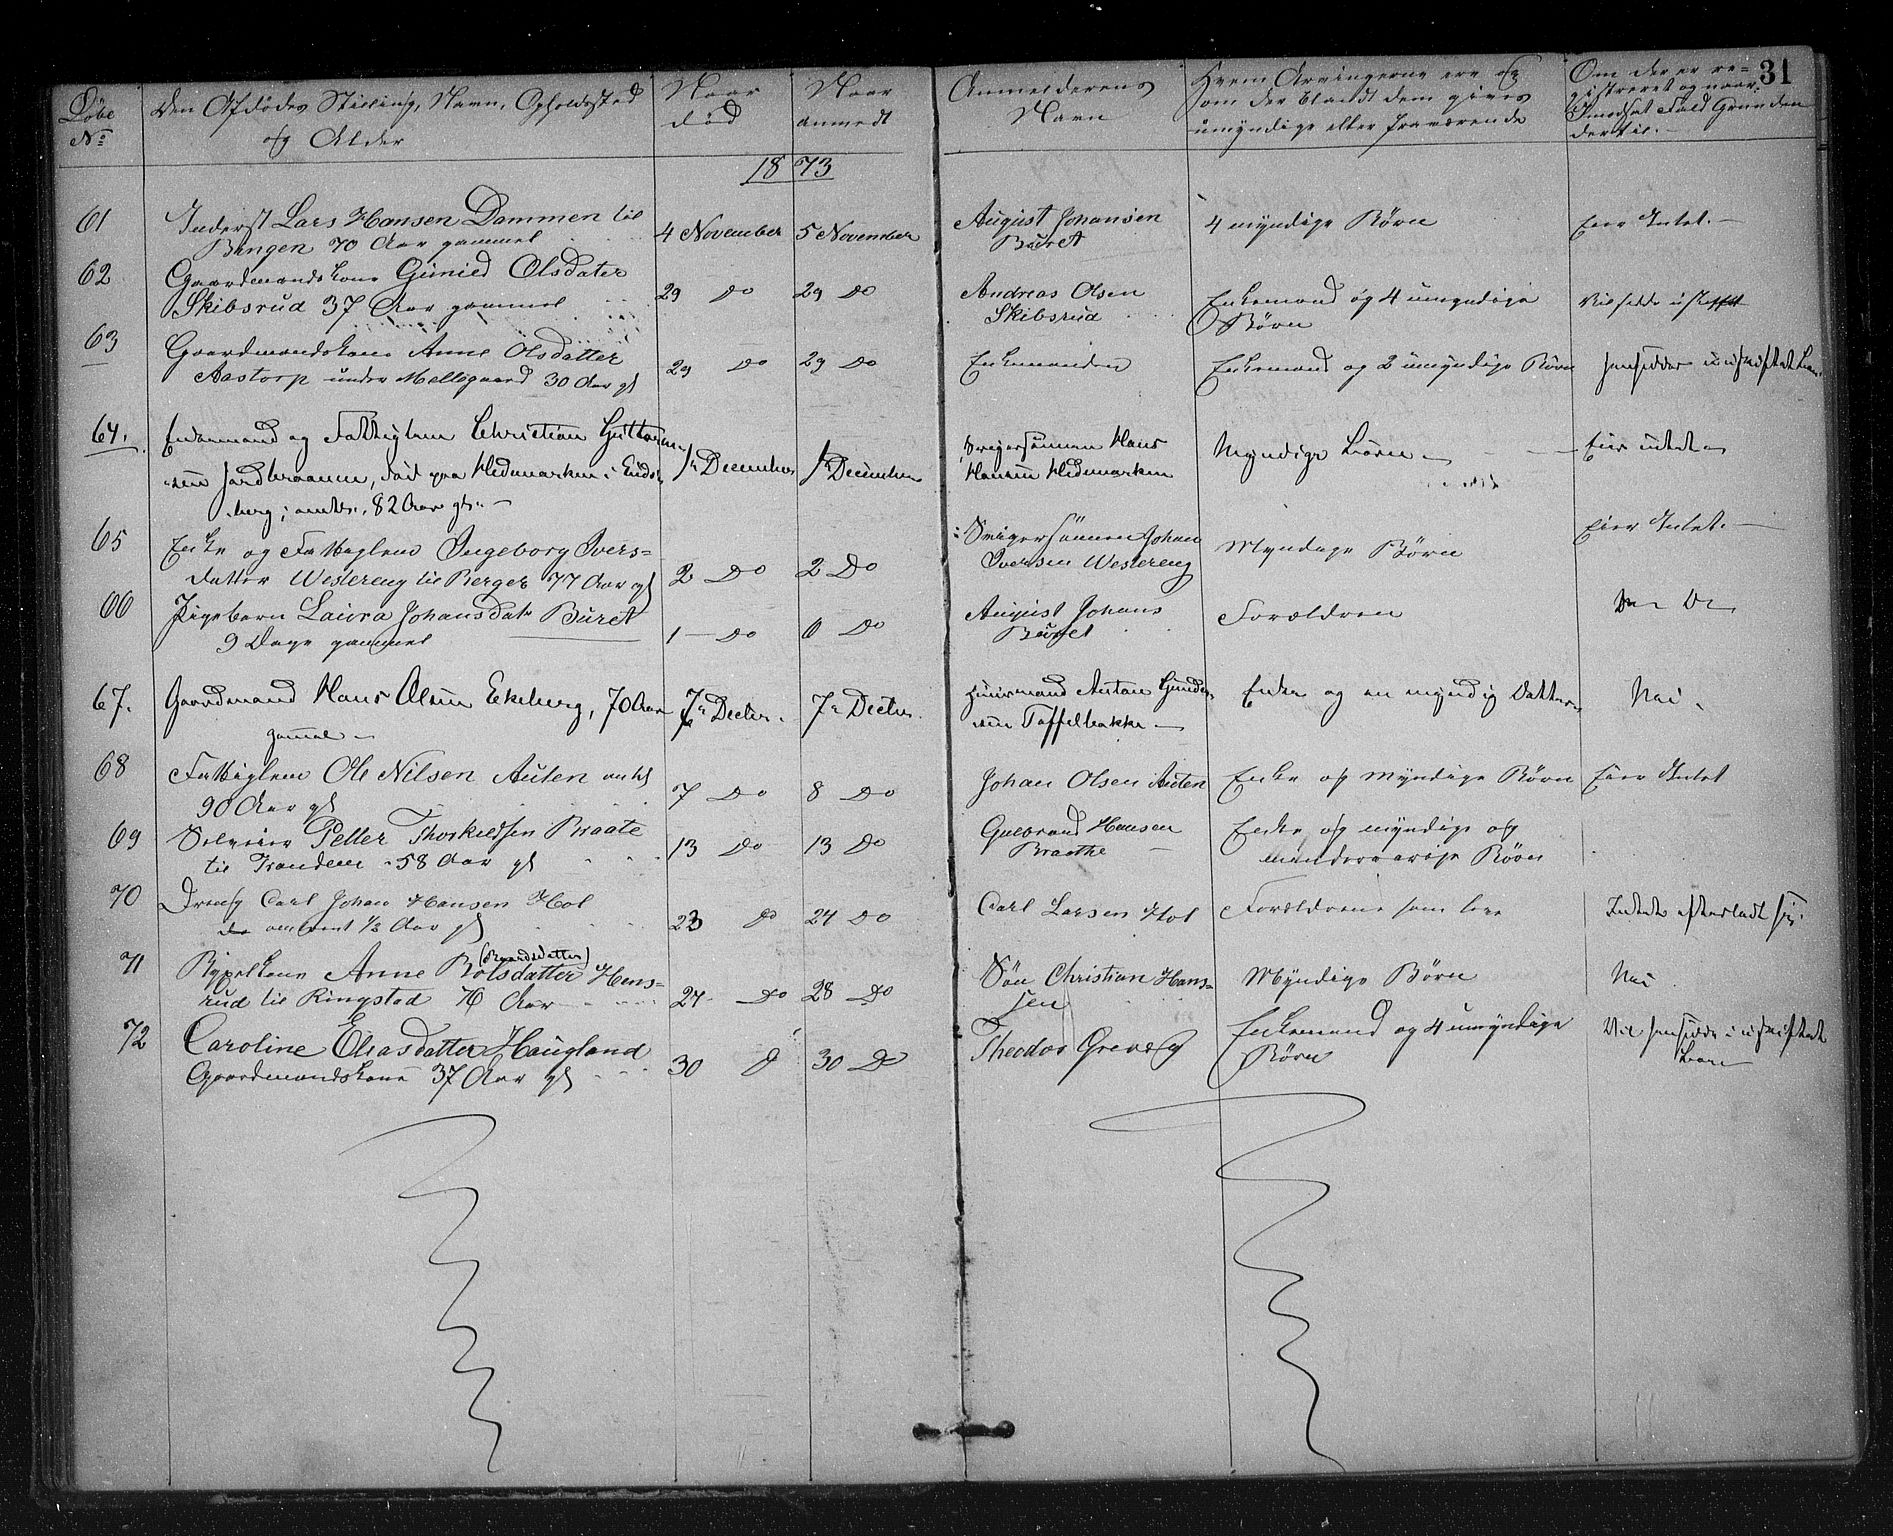 31
Løbe
No
Den Afdødes Stilling, Navn, Opholdssted
og Alder
Naar
død
Naar
anmeldt
Anmelderens
Navn
Hvem Arvingerne ere og
om der blandt dem gives
umyndige eller fraværende
Om der er re-
gistreret og naar.
I modsat Fald Grunden
dertil.
1873
61
Inderst Lars Hansen Dammen til
Bingen 70 Aar gammel
4 November
5 November
August Johansen
Buret
4 myndige Børn
Eier Intet.
62
Gaardmandskone Gunild Olsdater
Skibsrud 37 Aar gammel
29 Do
29 Do
Andreas Olsen
Skibsrud
Enkemand og 4 umyndige
Børn
63
Gaardmandskone Anne Olsdatter
Aastorp under Mellegaard 30 Aar gl
29 Do
29 Do
Enkemanden
Enkemand og 2 umyndige Børn
hensidder i uskiftet
64.
og Fattiglem Christian
død paa Hedemarken i
berg; 82 Aar gl.
1 December
1 December
Svigersønnen Hans
Hansen Hedemarken
Myndige Børn
Eier intet
65
Enke og Fattiglem Ingeborg Ivers-
datter Westereng til Berger 77 Aar gl
2 Do
2 Do
Svigersønnen Johan
Iversen Westereng
Myndige Børn
Eier Intet.
66
Pigebarn Laura Johansdatr Buret
9 Dage gammel
1 Do
6 Do
August Johans
Buret
Forældren
Do Do
67.
Gaardmand Hans Olsen Ekeberg, 70 Aar
gammel
7 Decbr.
7 Decbr.
Huusmand Anton Gunder-
sen Toffelbakke
Enke og en myndig Datter
Nei
68
Fattiglem Ole Nilsen Auten
90 Aar gl
7 Do
8 Do
Johan Olsen Auten
Enke og Myndige Børn
Eier Intet
69
Selveier Petter Thorkildsen Braate
til Frandem 58 Aar gl
13 Do
13 Do
Gulbrand Hansen
Braathe
Enke og myndige og
mindreaarige Børn
70
Dreng Carl Johan Hansen Hol
omtrent 1/2 Aar gl
23 Do
24 Do
Carl Larsen Hol
Forældrene som leve
Intet efterladt sig.
71
(Brandsdatter)
Anne Rolsdatter Hens-
rud til Ringstad 76 Aar
27 Do
28 Do
Søn Christian Hans-
sen
Myndige Børn
Nei
72
Caroline Eliasdatter Haugland
Gaardmandskone 37 Aar gl
30 D
30 Do
Theodor Greveg
Enkemand og 4 umyndige
Børn
Vil hensidde i uskiftet